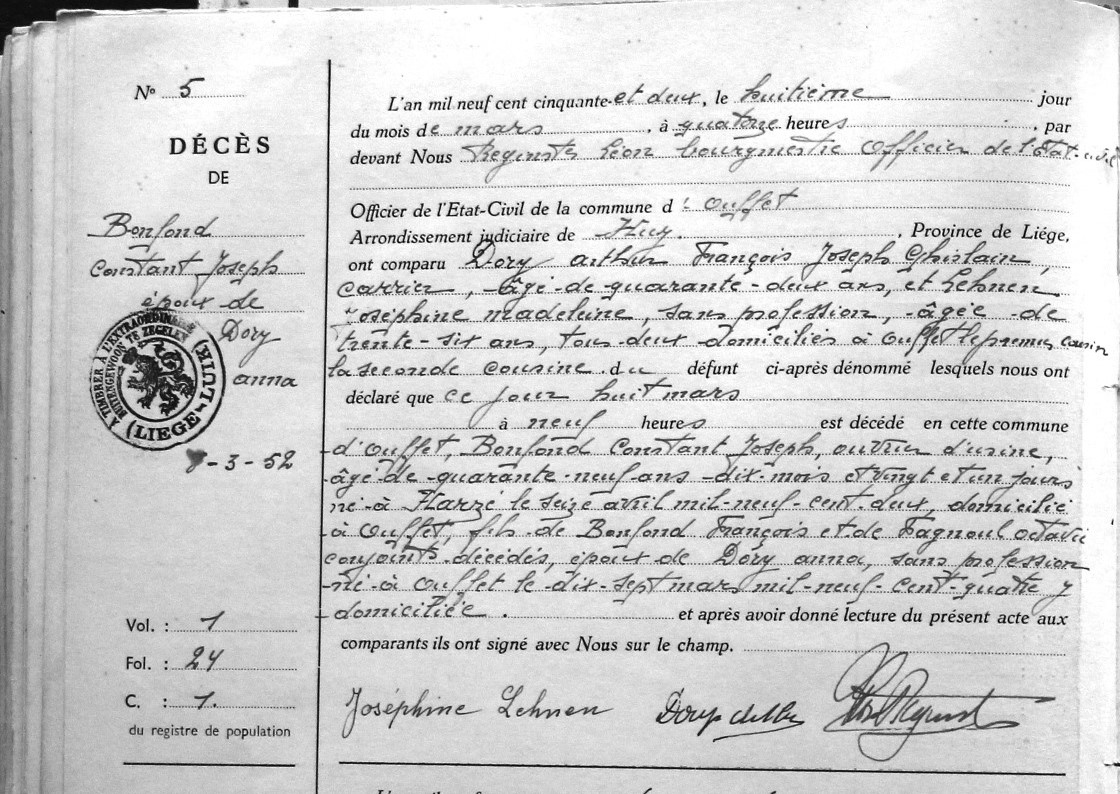 N° 5
DÉCÈS
DE
Bonfond
Constant Joseph
époux de
Dory
anna
A TIMBRER À L'EXTRAORDINAIRE
BUITENGEWOON TE ZEGELEN
(LIEGE-LUIK)
8-3-52
Vol. : 1
Fol. : 24
C. : 1.
du registre de population
L'an mil neuf cent cinquante-et deux, le huitième jour
du mois de mars, à quatorze heures, par
devant Nous Reginster Léon bourgmestre Officier de l'état-civil
Officier de l'Etat-Civil de la commune d'Ouffet
Arrondissement judiciaire de Huy, Province de Liége,
ont comparu Dory arthur François Joseph Ghislain,
carrier, âgé-de-quarante-deux ans, et Lehnen
Joséphine madeleine, sans profession, âgée-de
trente-six ans, tous-deux-domiciliés à Ouffet le premier cousin
la seconde cousine du défunt ci-après dénommé lesquels nous ont
déclaré que ce jour huit mars
à neuf heures est décédé en cette commune
d'Ouffet, Bonfond Constant Joseph, ouvrier d'usine,
âgé-de-quarante-neuf-ans-dix-mois et vingt et un jours
né-à Harzé le seize avril mil-neuf-cent-deux, domicilié
à Ouffet, fils-de Bonfond François et de Fagnoul octavie
conjoints-décédés, époux-de Dory anna, sans profession
né-à Ouffet le-dix-sept mars mil-neuf-cent-quatre y
domiciliée. et après avoir donné lecture du présent acte aux
comparants ils ont signé avec Nous sur le champ.
Joséphine Lehnen Dory